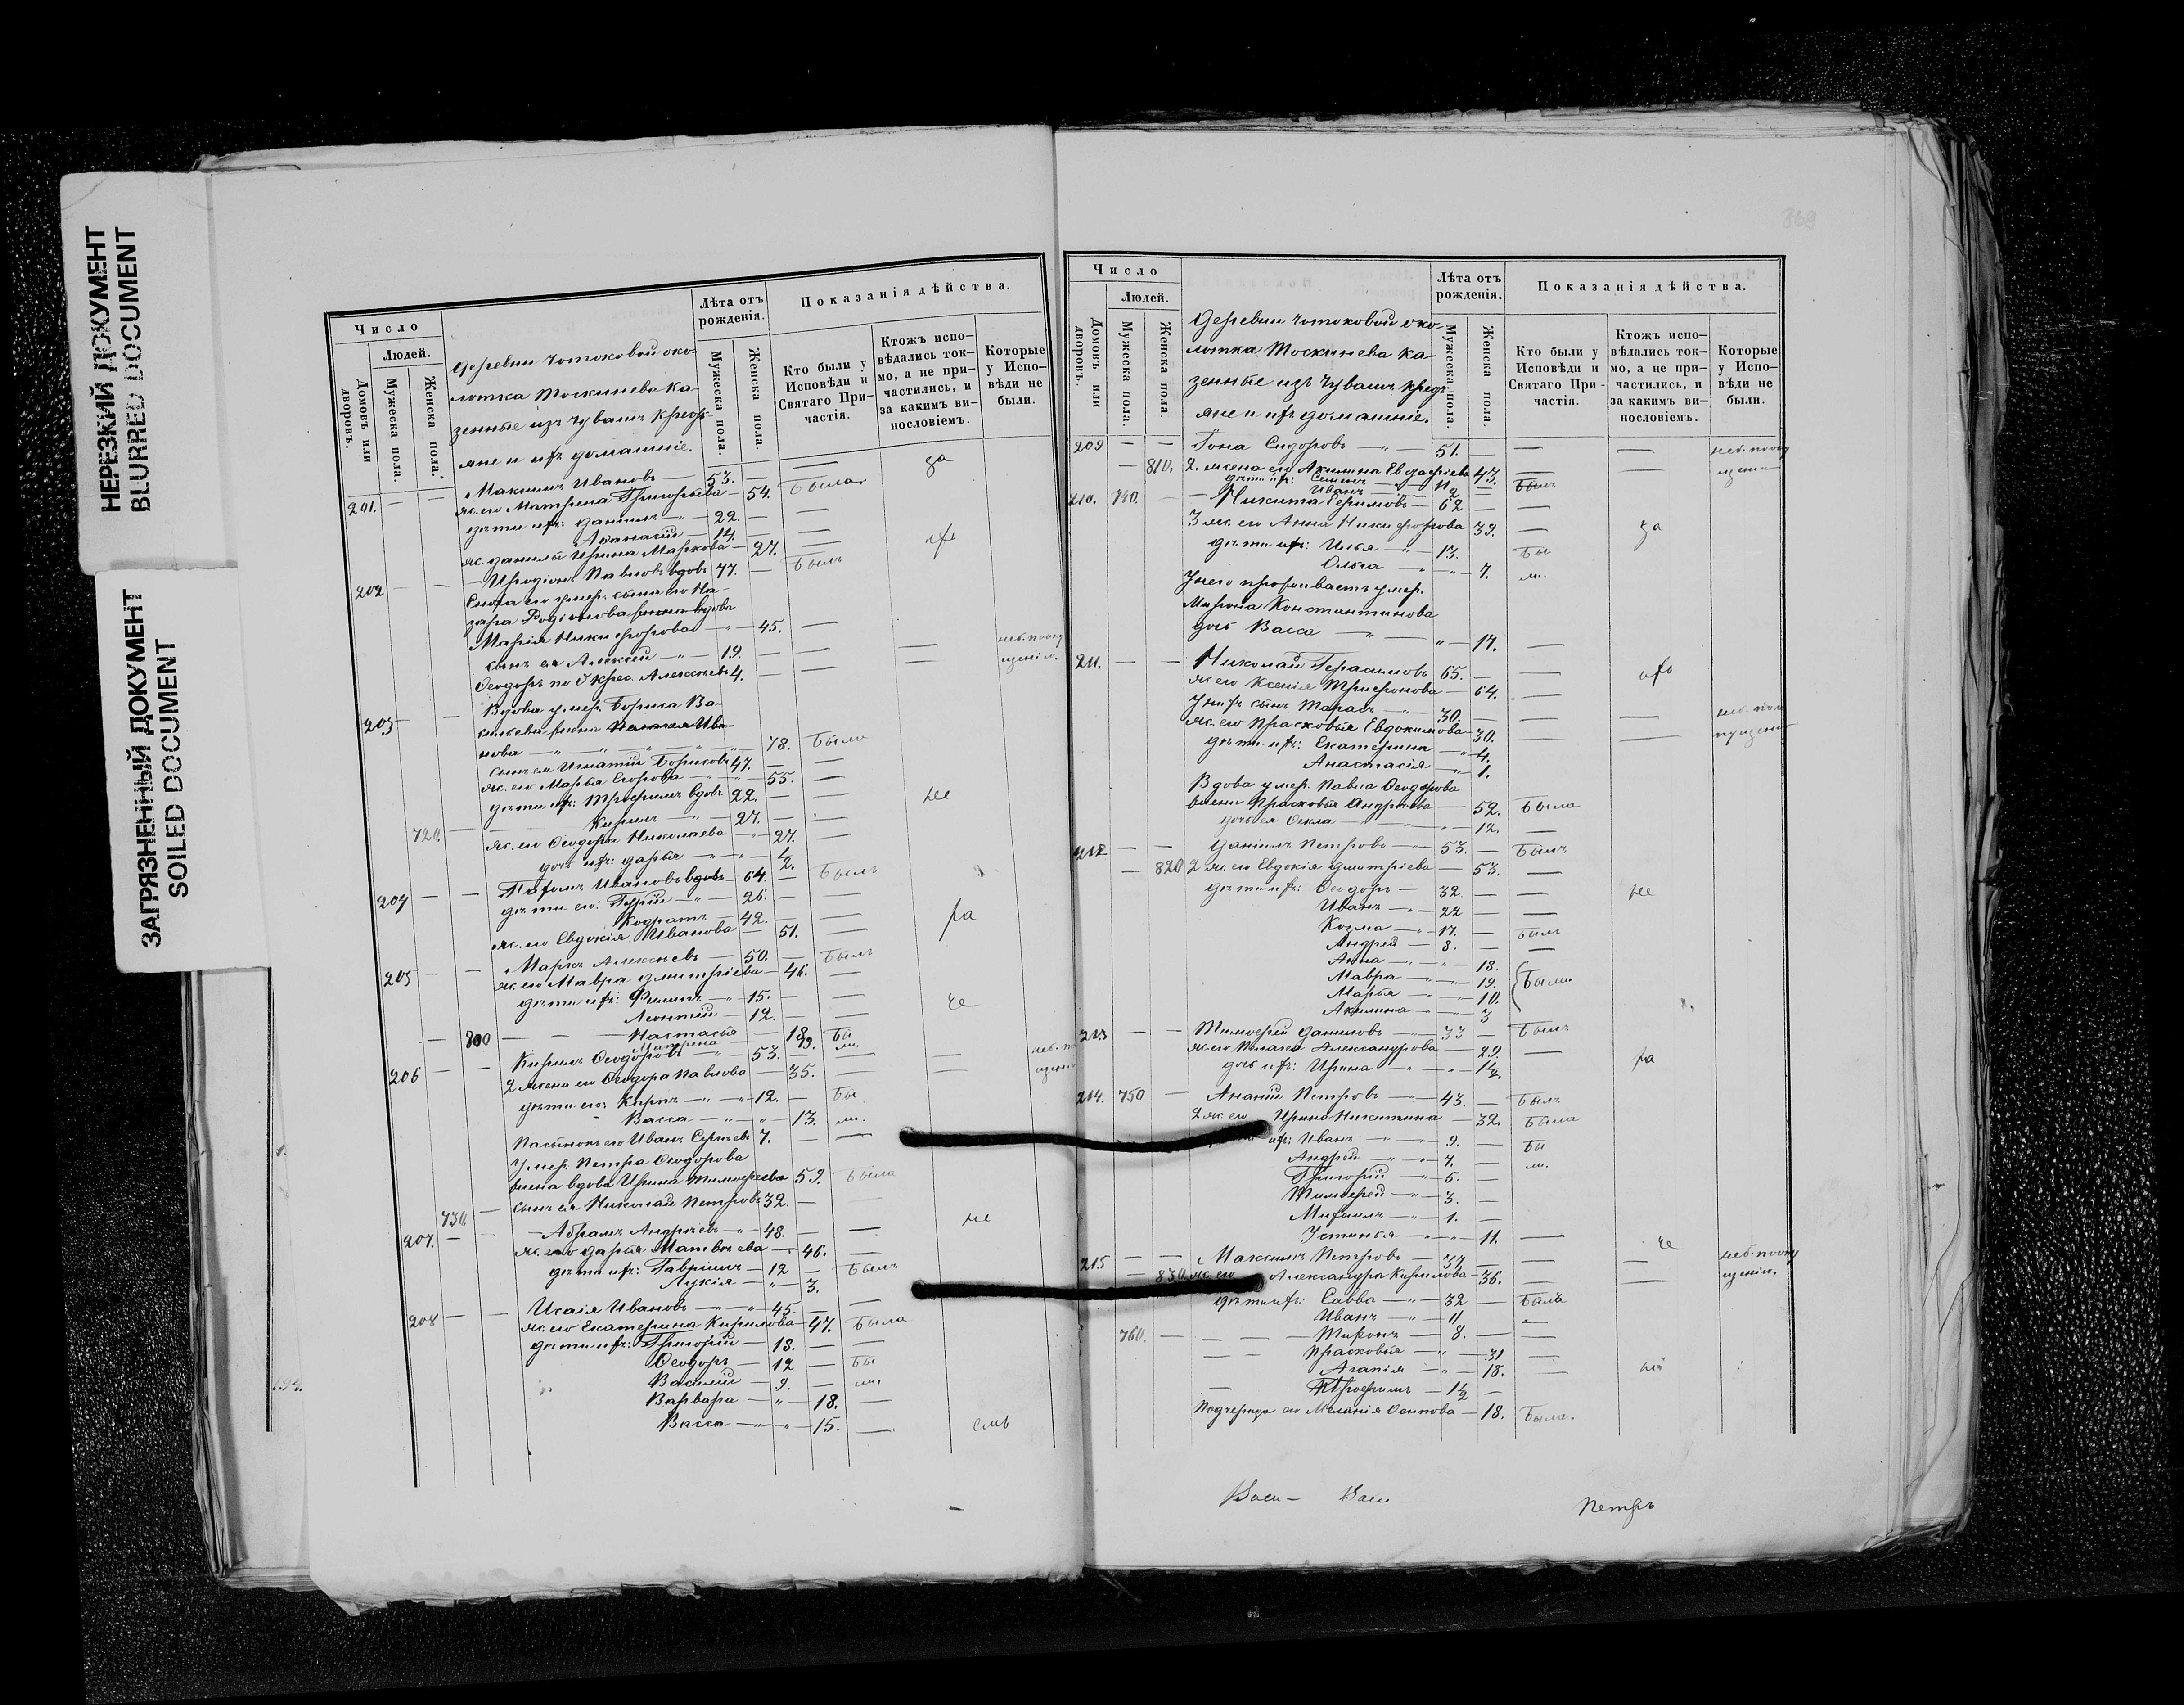 НЕРЕЗКИЙ ДОКУМЕНТ
BLURRED DOCUMENT
ЗАГРЯЗНЕННЫЙ ДОКУМЕНТ
SOILED DOCUMENT
194.
Число
Людей.
Домовъ или дворовъ.
Мужеска пола.
Женска пола.
Деревни Чотоковой око-
лотка Москинева ка-
зенные изъ Чувашъ крест-
яне и ихъ домашніе.
Лѣта отъ рожденія.
Мужеска пола.
Женска пола.
Показанія дѣйства.
Кто были у Исповѣди и Святаго При-частія.
Ктожъ испо-вѣдались ток-мо, а не при-частились, и за какимъ ви-нословіемъ.
Которые у Испо-вѣди не были.
201. — — Максимъ Ивановъ — 53. — — за
ж. его Матрена Григорьева — 54. Была
дѣти ихъ: Даніилъ — 22. — —
Афанасій — 14. — —
ж. Данилы Ирина Маркова — 27. — ихъ
202 — — Иродіонъ Павловъ вдовъ 77. — Былъ
Сноха его умер. сына его На-
зара Родіонова жена вдова
Марія Никифорова — 45. —
сынъ ея Алексѣй — 19. — — —
Ѳеодоръ по Ѳ крес. Алексѣевъ 4. — — —
203 — Вдова умер. Бориса Ва-
сильева жена Ива-
нова — 78. Была
сынъ ея Игнатій Борисовъ 47. — —
ж. его Марѳа Егорова — 55. —
дѣти ихъ: Трофимъ вдовъ 22. — — не
720. — Кирилъ — 27. — —
ж. его Ѳеодора Николаева — 27. —
дочь ихъ: Дарья — 1/2.
204 — — Пахомъ Ивановъ вдовъ — 64. — Былъ
дѣти его: Гурій — 26. —
Кодратъ — 42. — — ра
ж. его Евдокія Иванова — 51. —
205 — — Маркъ Алексѣевъ — 50. — Былъ
ж. его Мавра Дмитріева — 46. —
дѣти ихъ: Филипъ — 15. — — че
Леонтій — 12. — —
— 800 — Настасья — 18 Бы
Матрена — 9. ли.
206 — — Кирилъ Ѳеодоровъ — 53. — — —
2 жена его Ѳеодора Павлова — 35. — —
дѣти его: Карпъ — 12. — Бы
Васса — 13. ли.
Пасынокъ его Иванъ Сергѣевъ 7. — —
Умер. Петра Ѳеодорова
жена вдова Ирина Тимофеева 59. Была
730. — сынъ ея Николай Петровъ 32. — —
207. — — Абрамъ Андрѣевъ — 48. — — не
ж. его Дарья Матвѣева — 46. —
дѣти ихъ: Гавріилъ — 12 — Былъ
Лукія — 3.
208 — — Исаія Ивановъ — 45. — —
ж. его Екатерина Кирилова — 47. Была
дѣти ихъ: Григорій — 13. — —
Ѳеодоръ — 12 — Бы
Василій — 9. — ли.
Варвара — 18. —
Васса — 15. — емъ
Число
Людей.
Домовъ или дворовъ.
Мужеска пола.
Женска пола.
Деревни Чотоковой око-
лотка Москинева ка-
зенные изъ Чувашъ крест-
яне и ихъ домашніе.
Лѣта отъ рожденія.
Мужеска пола.
Женска пола.
Показанія дѣйства.
Кто были у Исповѣди и Святаго При-частія.
Ктожъ испо-вѣдались ток-мо, а не при-частились, и за какимъ ви-нословіемъ.
Которые у Испо-вѣди не были.
209 — — Іона Сидоровъ — 51. — — —
— 810. 2. жена его Акилина Евдафіева 43. — —
дѣти ихъ: Семенъ — 11 — Былъ
Иванъ — 2. —
210. 740. — Никита Ефимовъ — 62 — —
3 ж. его Анна Никифорова 39. — за
дѣти ихъ: Илья — 13. — Бы
Ольга — 7. ли.
У него проживаетъ умер.
Мирона Константинова
дочь Васса — 17. —
211. — — Николай Герасимовъ 65. — — ихъ
ж. его Ксенія Трифонова — 64. —
У нихъ сынъ Тарасъ — 30. — — —
ж. его Прасковья Евдокимова — 30. — —
дѣти ихъ: Екатерина — 4.
Анастасія — 1.
Вдова умер. Павла Ѳеодорова
жена Прасковья Андреева — 52. Была
дочь ея Ѳекла — 12. —
212 — — Даніилъ Петровъ — 53. — Былъ
— 820 2 ж. его Евдокія Дмитріева — 53. —
дѣти ихъ: Ѳеодоръ — 32 — — не
Иванъ — 22 — —
Козма — 17. — Былъ
Андрей — 8. — —
Анна — 18.
Мавра — 19. Были
Марья — 10.
Акилина — 3
213 — — Тимофей Даниловъ — 33 — Былъ
ж. его Пелагея Александрова — 29. — ра
дочь ихъ: Ирина — 1/2.
214. 750 — Ананій Петровъ — 43. — Былъ
2 ж. его Ирина Никитина — 32. Была
ихъ: Иванъ — 9. — Бы
Андрей — 7. — ли.
Григорій — 5. —
Тимофей — 3. —
Михаилъ — 1. —
Устинья — 11. — че
215 — — Максимъ Петровъ — 37 — — —
— 830. ж. его Александра Кирилова — 36. — —
дѣти ихъ: Савва — 32 — Былъ
Иванъ — 11 —
760. — Миронъ — 8. — —
Прасковья — 31 —
Агапія — 18. —
Трофимъ — 1 1/2 —
Падчерица его Меланія Осипова — 18. Была.
Васи— Васи
Петръ